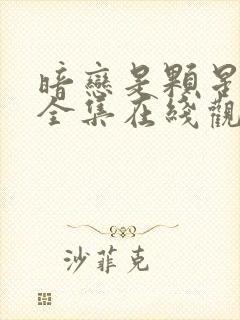 暗戀是顆星
全集在綫觀
沙菲克